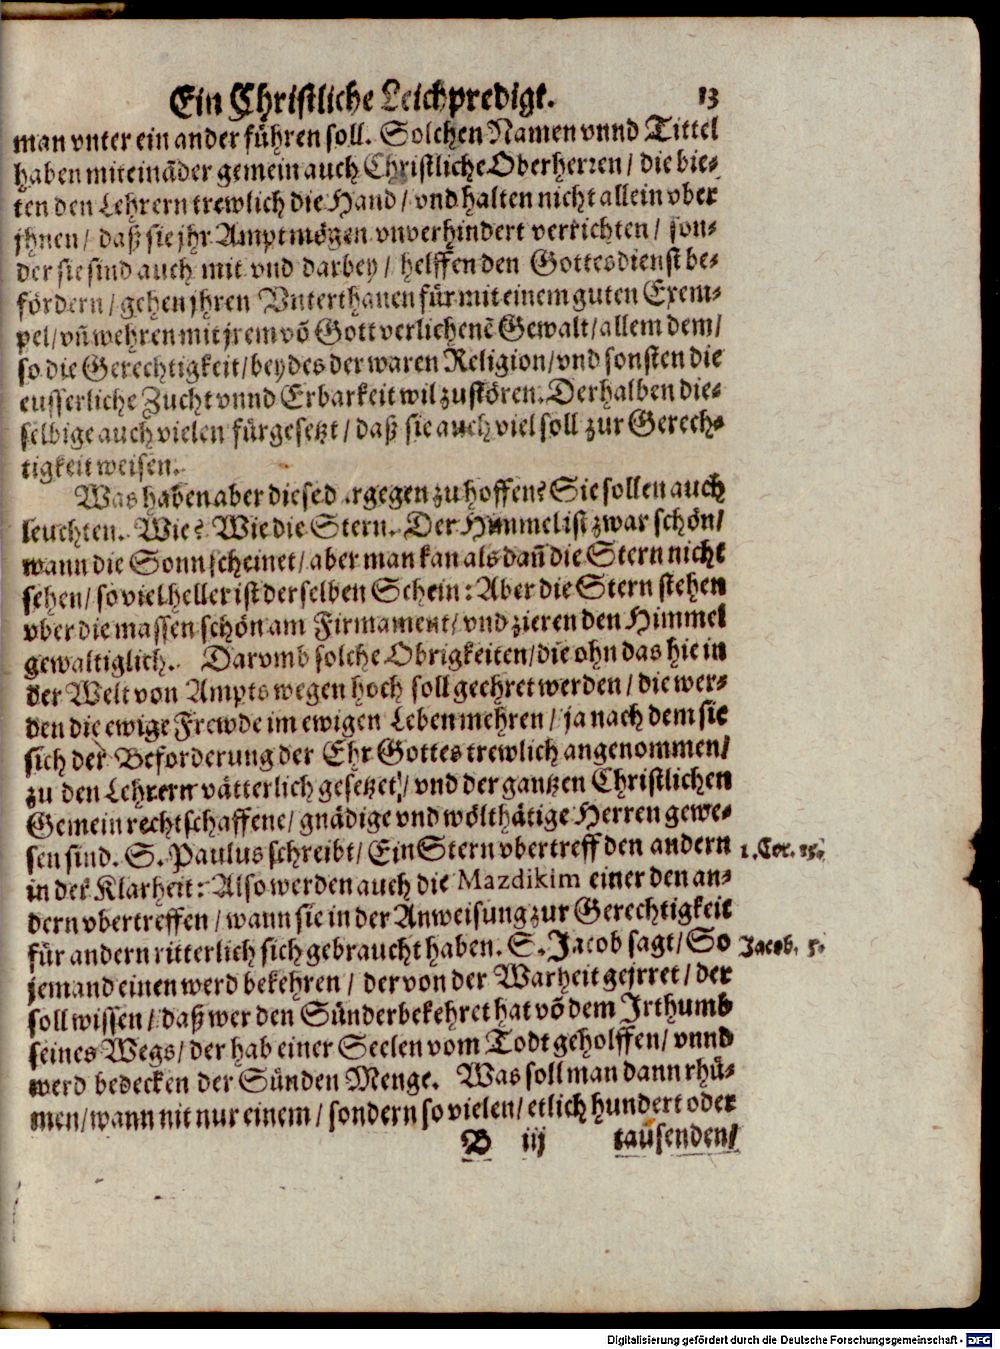 Ein Christliche Leichpredigt. 13
man vnter ein ander führen soll. Solchen Namen vnnd Tittel
haben miteinãder gemein auch Christliche Oberherren / die bie-
ten den Lehrern trewlich die Hand / vnd halten nicht allein vber
jhnen / daß sie jhr Ampt mögen vnverhindert verrichten / son-
der sie sind auch mit vnd darbey / helffen den Gottesdienst be-
fördern / gehen jhren Vnterthanen für mit einem guten Exem-
pel / vñ wehren mit jrem võ Gott verlichenẽ Gewalt / allem dem /
so die Gerechtigkeit / beydes der waren Religion / vnd sonsten die
eusserliche Zucht vnnd Erbarkeit wil zustören. Derhalben die-
selbige auch vielen fürgesetzt / daß sie auch viel soll zur Gerech-
tigkeit weisen.
Was haben aber diese dargegen zu hoffen? Sie sollen auch
leuchten. Wie? Wie die Stern. Der Himmel ist zwar schön /
wann die Sonn scheinet / aber man kan als dañ die Stern nicht
sehen / so viel heller ist derselben Schein: Aber die Stern stehen
vber die massen schön am Firmament / vnd zieren den Himmel
gewaltiglich. Darvmb solche Obrigkeiten / die ohn das hie in
der Welt von Ampts wegen hoch soll geehret werden / die wer-
den die ewige Frewde im ewigen Leben mehren / ja nach dem sie
sich der Beforderung der Ehr Gottes trewlich angenommen /
zu den Lehrern vätterlich gesetzet / vnd der gantzen Christlichen
Gemein rechtschaffene / gnädige vnd wölthätige Herren gewe-
sen sind. S. Paulus schreibt / Ein Stern vbertreff den andern 1. Cor. 15.
in der Klarheit: Also werden auch die Mazdikim einer den an-
dern vbertreffen / wann sie in der Anweisung zur Gerechtigkeit
für andern ritterlich sich gebraucht haben. S. Jacob sagt / So Jacob. 5.
jemand einen werd bekehren / der von der Warheit gejrret / der
soll wissen / daß wer den Sünder bekehret hat võ dem Irthumb
seines Wegs / der hab einer Seelen vom Todt geholffen / vnnd
werd bedecken der Sünden Menge. Was soll man dann rhü-
men / wann nit nur einem / sondern so vielen / etlich hundert oder
B iij tausenden /
Digitalisierung gefördert durch die Deutsche Forschungsgemeinschaft - DFG